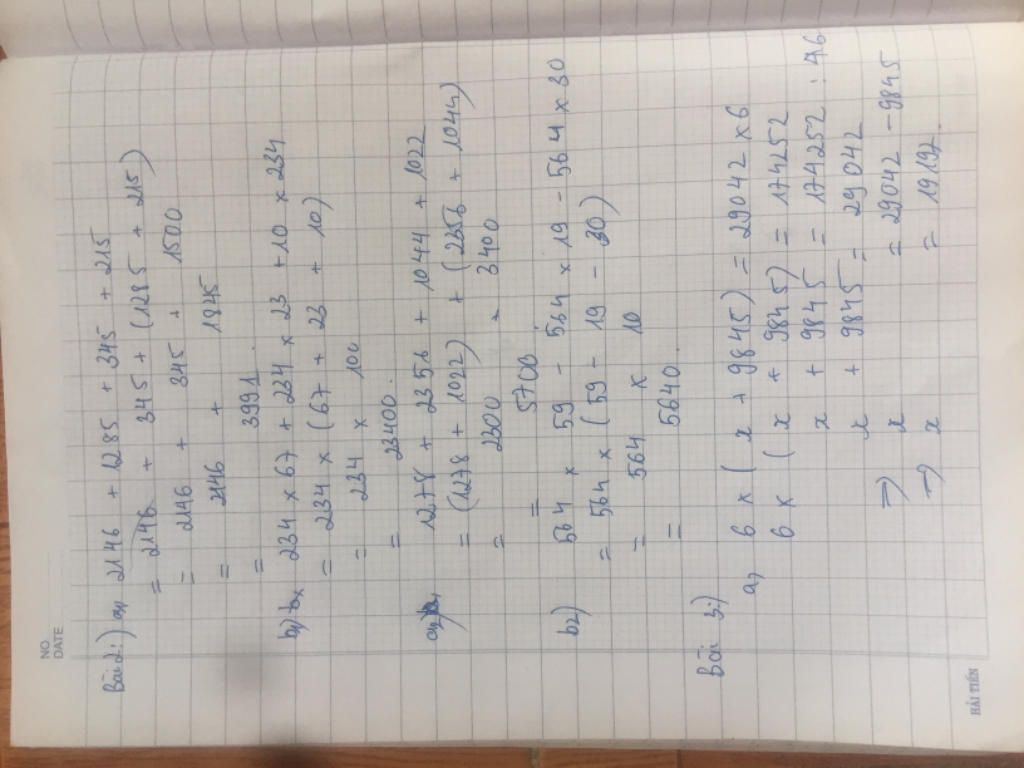 NO.
DATE
Bài 2:) a1, 2146 + 1285 + 345 + 215
= 2146 + 345 + (1285 + 215)
= 2146 + 345 + 1500
= 2146 + 1845
= 3991
b) 234 x 67 + 234 x 23 + 10 x 234
= 234 x (67 + 23 + 10)
= 234 x 100
= 23400.
1278 + 2356 + 1044 + 1022
= (1278 + 1022) + (2356 + 1044)
= 2300 + 3400
= 5700
b2) 564 x 59 - 564 x 19 - 564 x 30
= 564 x (59 - 19 - 30)
= 564 x 10
= 5640.
Bài 3:)
a, 6 x ( x + 9845) = 29042 x 6
6 x ( x + 9845) = 174252
x + 9845 = 174252 : 6
x + 9845 = 29042
=> x = 29042 - 9845
=> x = 19192.
HẢI TIẾN